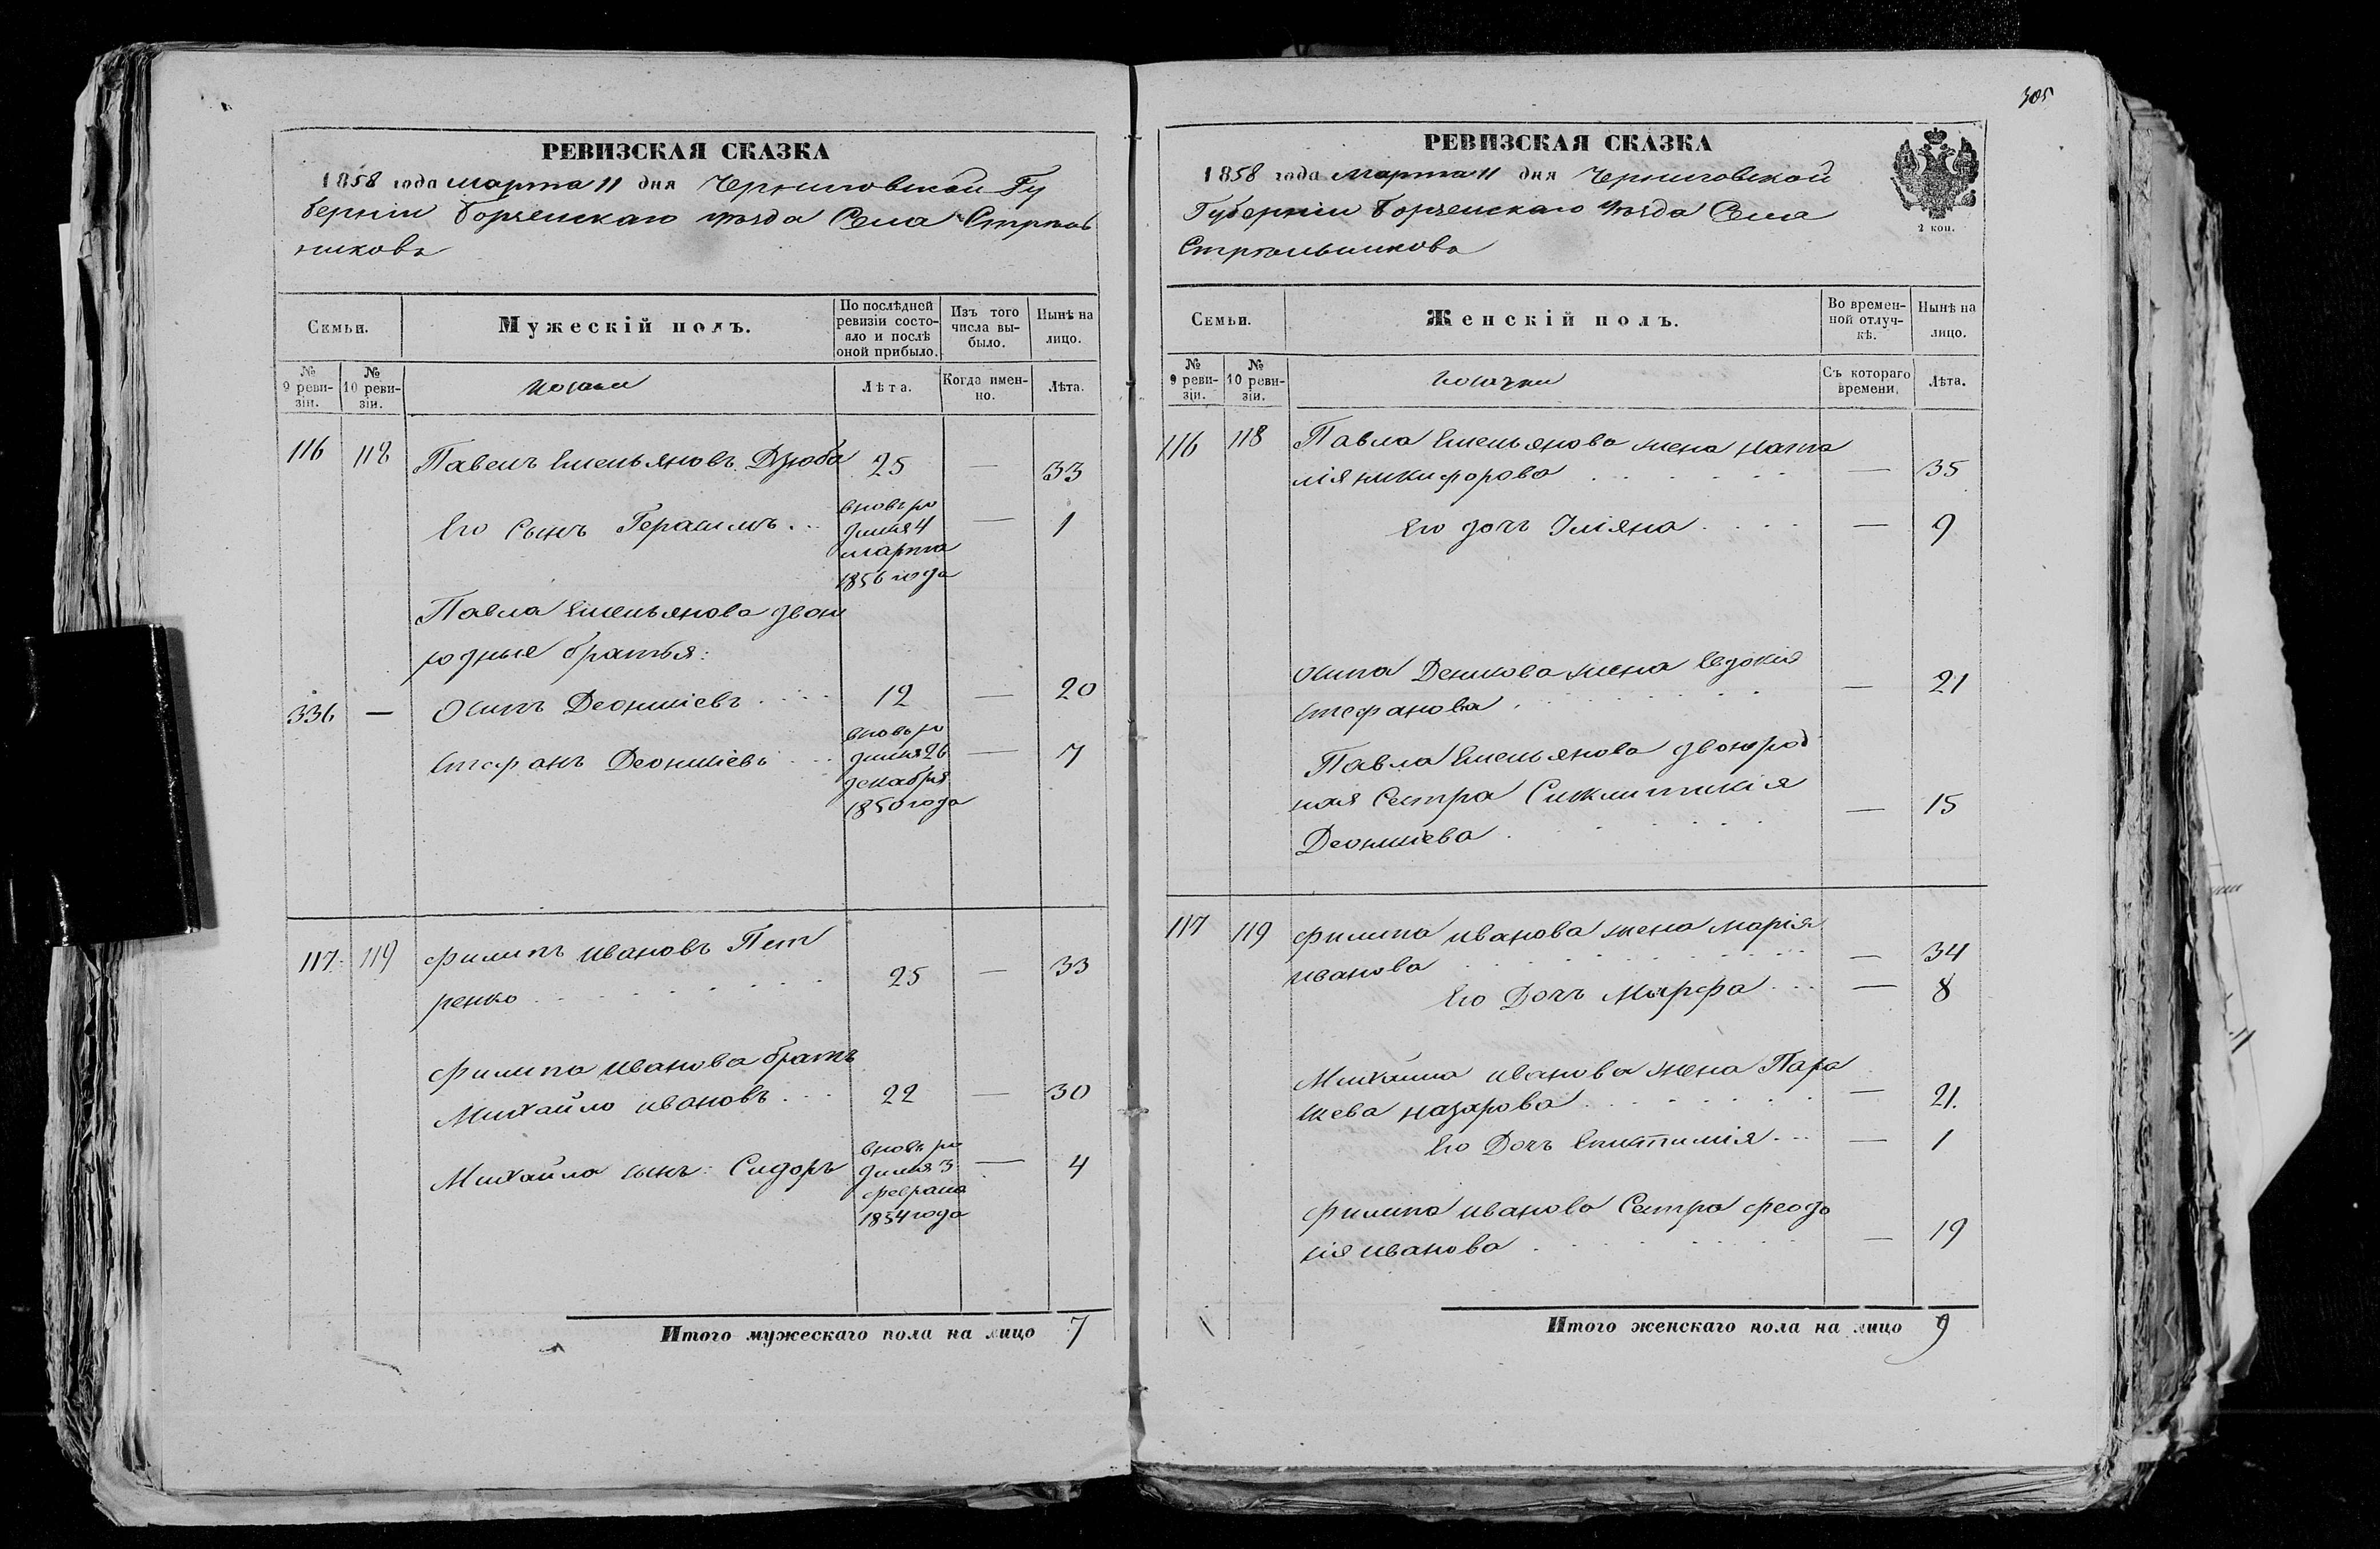 РЕВИЗСКАЯ СКАЗКА
1858 года марта 11 дня Черниговской Гу
берніи Борзенскаго уѣзда Села Стрѣль
никовъ
Семьи.
Мужескій полъ.
По послѣдней ревизіи состояло и послѣ оной прибыло.
Изъ того числа выбыло.
Нынѣ на лицо.
№ 9 ревизіи.
№ 10 ревизіи.
козаки
Лѣта.
Когда именно.
Лѣта.
116 118 Павелъ Емельяновъ Дзюба 25 — 33
Его Сынъ Герасимъ ... вновь ро — 1
дился 4
марта
1856 года
Павла Емельянова двою
родные братья:
336 — Осипъ Деонисіевъ .... 12 — 20
Стефанъ Деонисіевъ ... вновь ро — 7
дился 26
декабря
1850 года
117 119 Филипъ Ивановъ Пет
ренко 25 — 33
Филипа Иванова братъ
Михайло Ивановъ ... 22 — 30
Михайла сынъ: Сидоръ вновь ро — 4
дился 3
февраля
1854 года
Итого мужескаго пола на лицо 7
305
РЕВИЗСКАЯ СКАЗКА
1858 года Марта 11 дня Черниговской
Губерніи Борзенскаго уѣзда Села
Стрѣльниковъ
2 коп.
Семьи.
Женскій полъ.
Во временной отлучкѣ.
Нынѣ на лицо.
№ 9 ревизіи.
№ 10 ревизіи.
козачки
Съ котораго времени.
Лѣта.
116 118 Павла Емельянова жена Ната
лія Никифорова — 35
Его дочь Уліяна .... — 9
Осипа Денисова жена Евдокія
Стефанова — 21
Павла Емельянова двоюрод
ная Сестра Синклитикія
Деонисіева — 15
117 119 Филипа Иванова жена Марія
Иванова — 34
Его Дочь Марфа ... — 8
Михайла Иванова жена Пара
скева Назарова — 21.
Его Дочь Епистимія ... — 1
Филипа Иванова Сестра Феодо
сія Иванова — 19
Итого женскаго пола на лицо 9